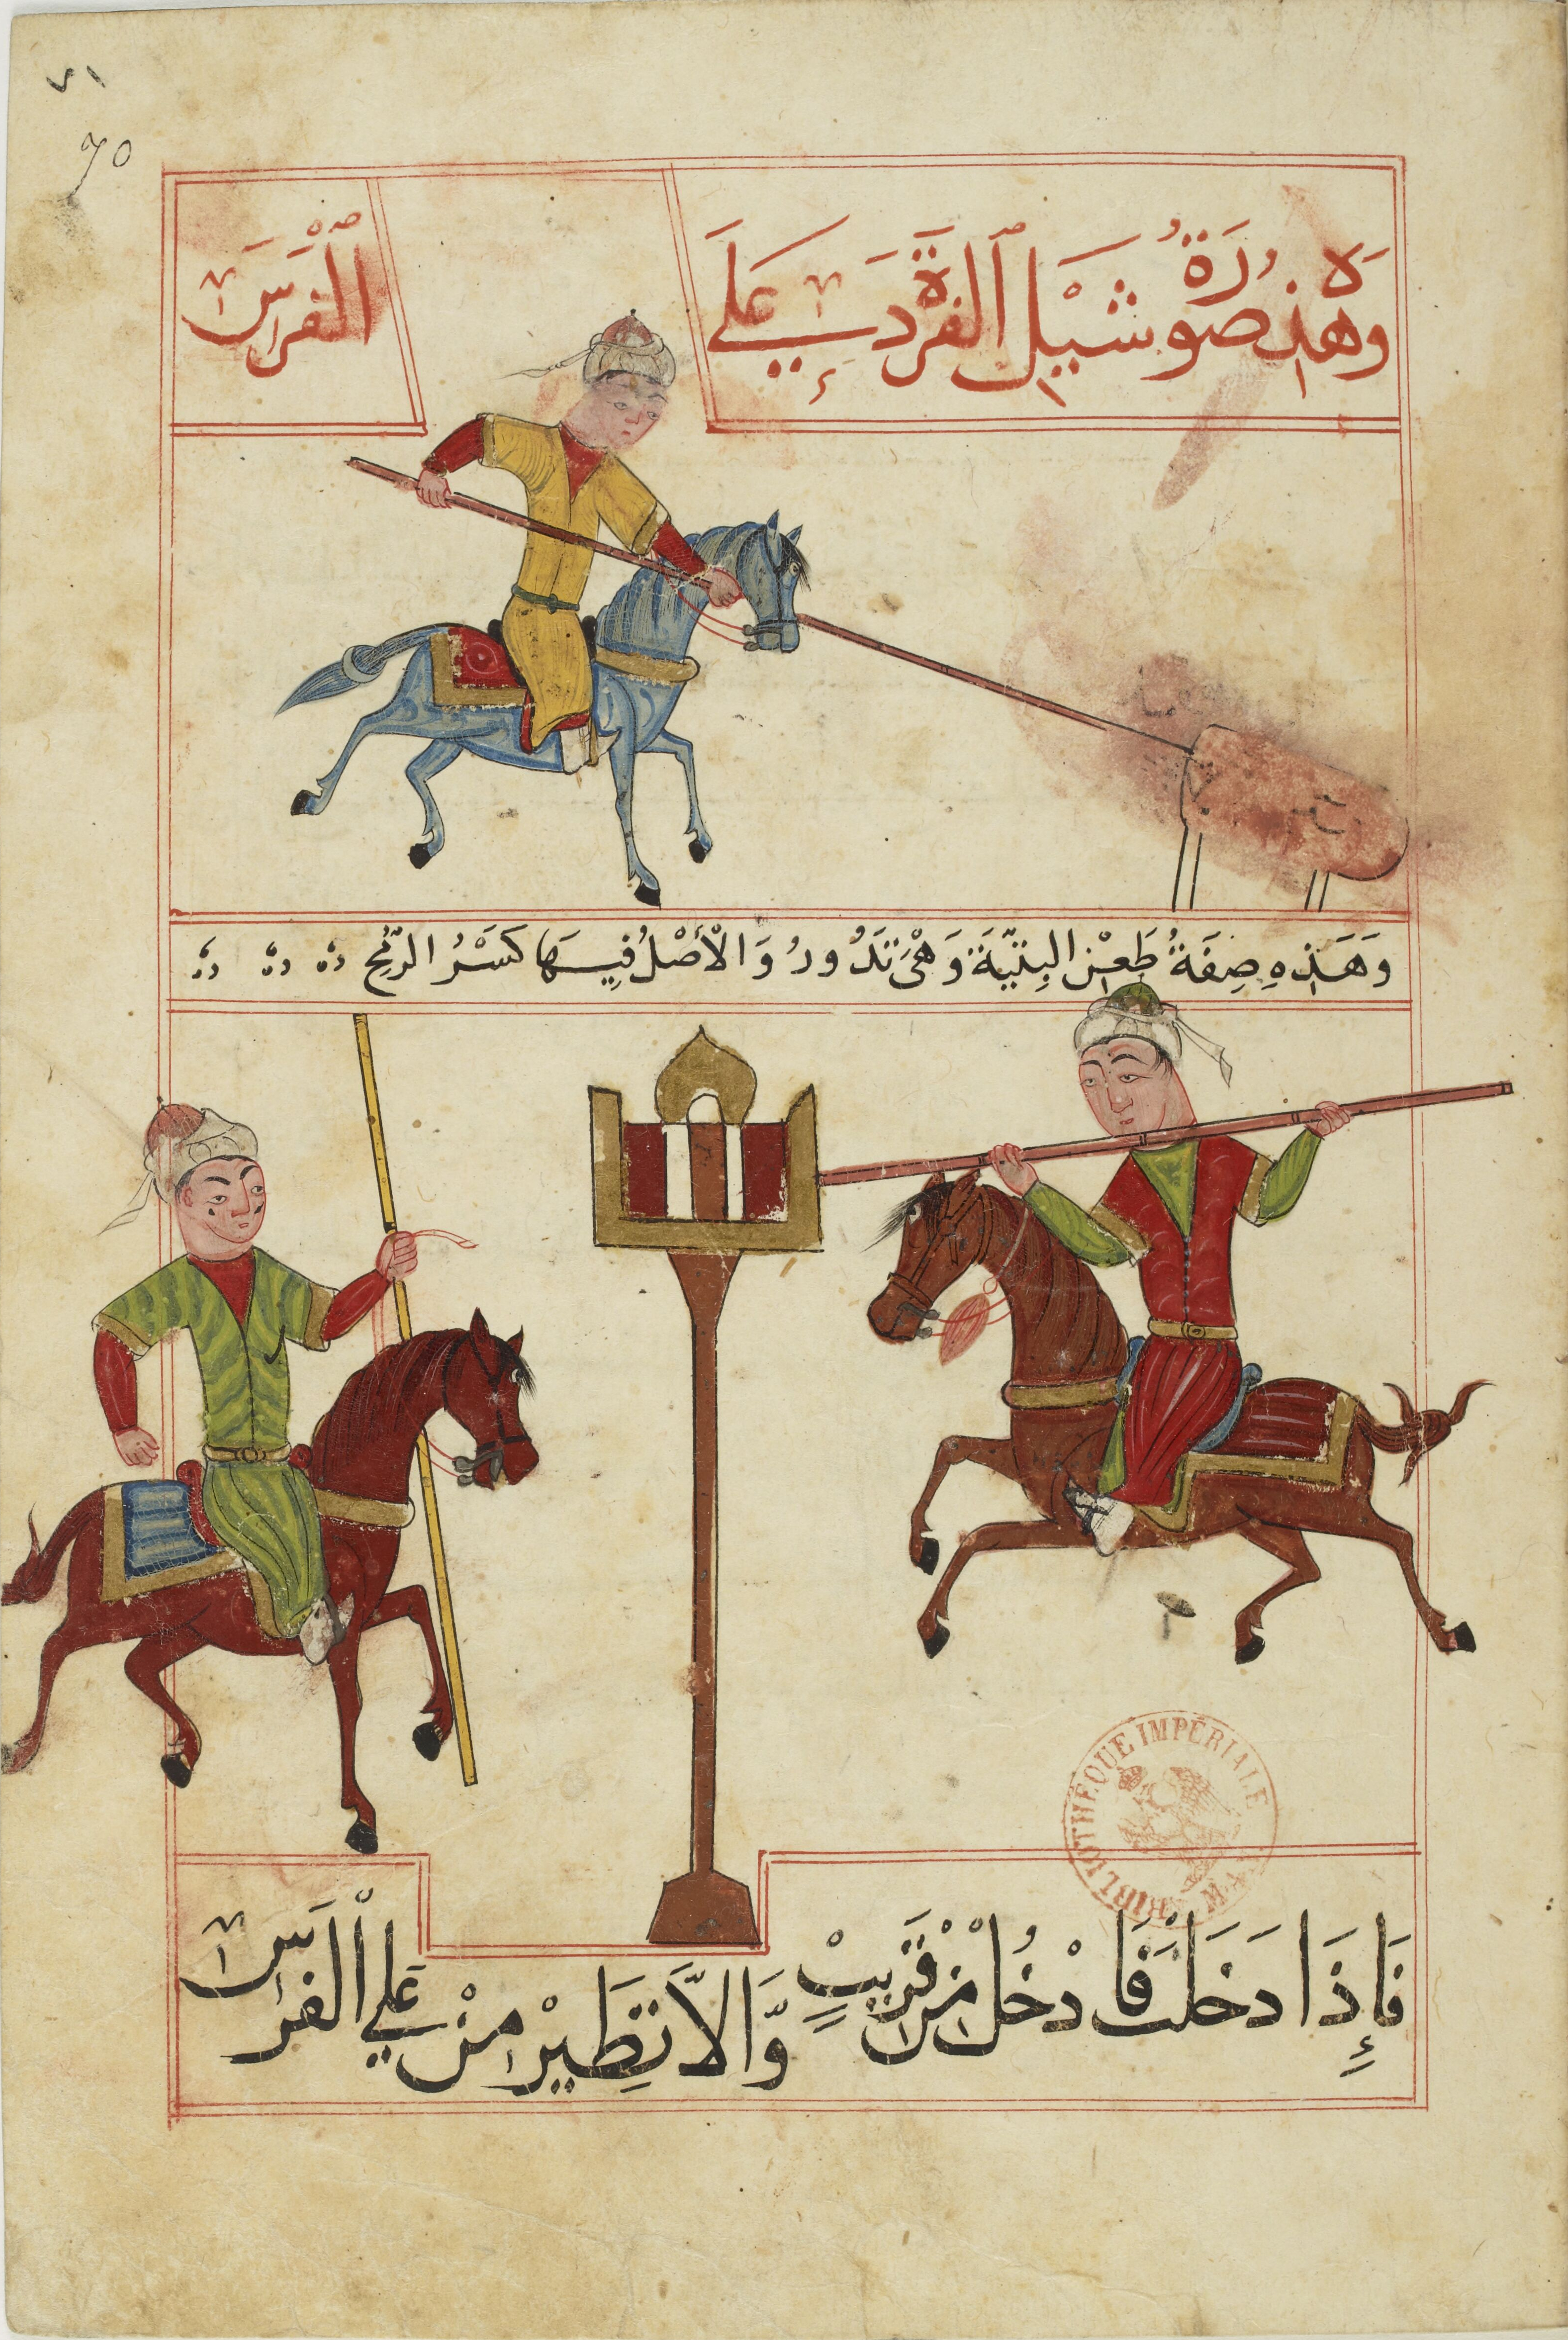 ٧١
70
وَهَذِهِ صُورَةُ شَيْلِ ٱلفَرْدَةِ عَلَى
ٱلْفَرَسِ
وَهَذِهِ صِفَةُ طَعْنِ البِنِّيَّةَ وَهْىَ تَدُورُ وَالْأَصْلُ فِيهَا كَسْرُ الرُّمْحِ
فَإِذَا دَخَلْتَ فَادْخُلْ مِنْ قَرِيبٍ
وَّالاَّ تَطِيْرُ مِنْ عَلَى الْفَرَسِ
BIBLIOTHÈQUE IMPÉRIALE